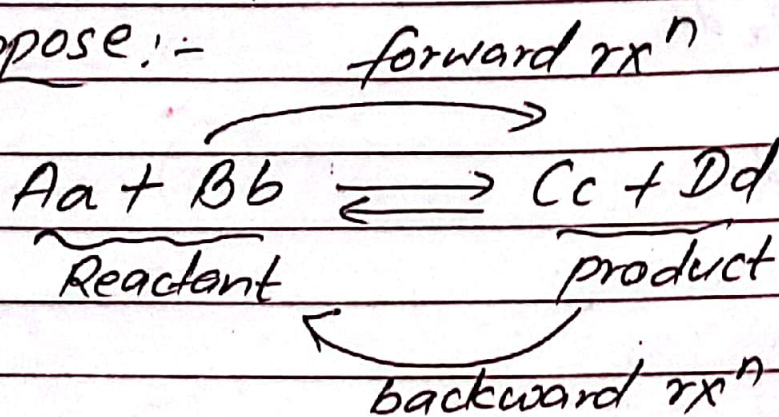 pose:-
forward rxⁿ
Aa + Bb ⇌ Cc + Dd
Reactant product
backward rxⁿ